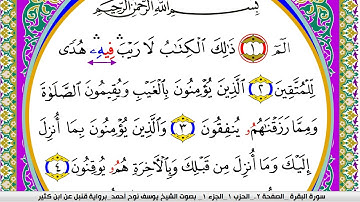 بِسْمِ اللَّهِ الرَّحْمَٰنِ الرَّحِيمِ
الٓمٓ ١ ذَٰلِكَ الْكِتَٰبُ لَا رَيْبَ فِيهِۦ هُدًى
لِّلْمُتَّقِينَ ٢ الَّذِينَ يُؤْمِنُونَ بِالْغَيْبِ وَيُقِيمُونَ الصَّلَوٰةَ
وَمِمَّا رَزَقْنَٰهُمُۥ يُنفِقُونَ ٣ وَالَّذِينَ يُؤْمِنُونَ بِمَا أُنزِلَ
إِلَيْكَ وَمَا أُنزِلَ مِن قَبْلِكَ وَبِالْأَخِرَةِ هُمُۥ يُوقِنُونَ ٤
سورة البقرة_ الصفحة ٢_ الحزب ١_ الجزء ١_ بصوت الشيخ يوسف نوح أحمد_ برواية قنبل عن ابن كثير